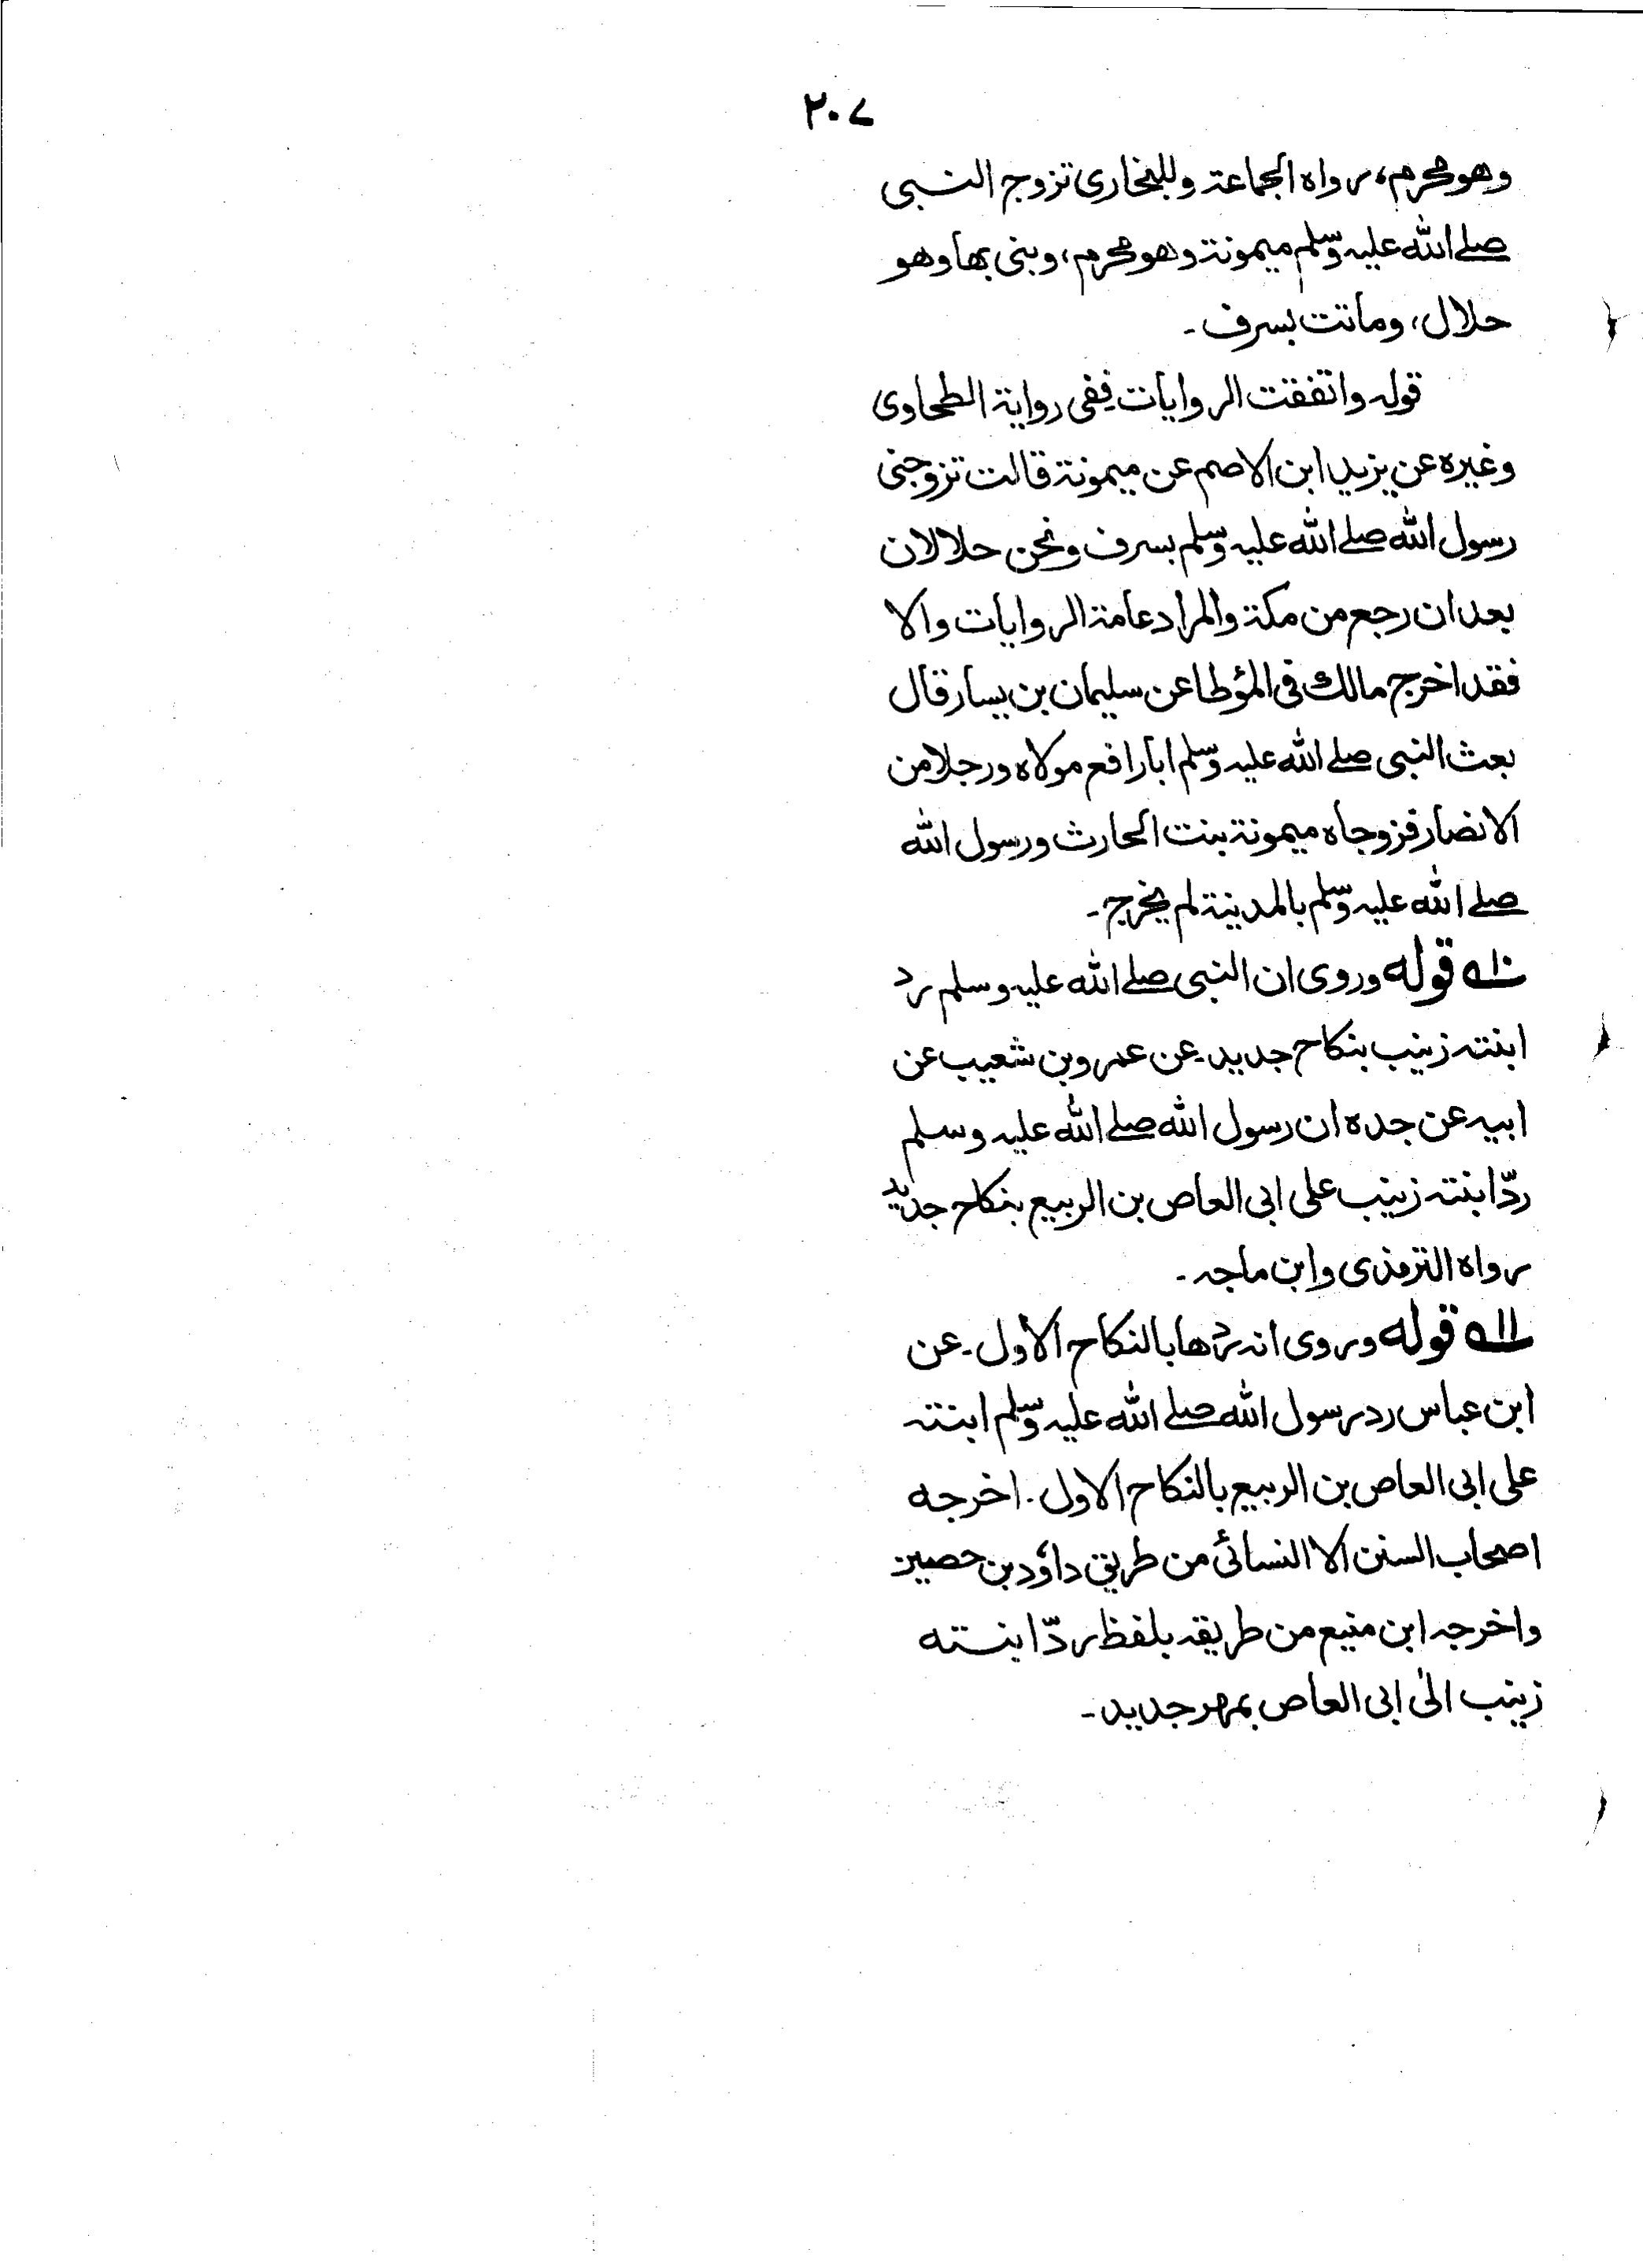 ٢٠٧
وهو محرم، رواه الجماعة وللبخاري تزوج النبي
صلے اللہ علیہ وسلم میمونة وهو محرم، وبنی بها وهو
حلال، وماتت بسرف۔
قوله واتفقت الروایات ففی روایة الطحاوی
وغیره عن یزید ابن الاصم عن میمونة قالت تزوجنی
رسول اللہ صلے اللہ علیہ وسلم بسرف ونحن حلالان
بعد ان رجع من مكة والمراد عامة الروایات والا
فقد اخرج مالك فی المؤطا عن سلیمان بن یسار قال
بعث النبی صلے اللہ علیہ وسلم ابا رافع مولاه ورجلا من
الانصار فزوجاه میمونة بنت الحارث ورسول اللہ
صلے اللہ علیہ وسلم بالمدینة لم یخرج۔
۱۰ قوله وروی ان النبی صلے اللہ علیہ وسلم رد
ابنته زینب بنکاح جدید۔ عن عمرو بن شعیب عن
ابیه عن جده ان رسول اللہ صلے اللہ علیہ وسلم
ردّ ابنته زینب علی ابی العاص بن الربیع بنکاح جدید
رواه الترمذی وابن ماجه۔
۱۱ قوله وروی انه ردها بالنکاح الاول۔ عن
ابن عباس رد رسول اللہ صلے اللہ علیہ وسلم ابنته
علی ابی العاص بن الربیع بالنکاح الاول۔ اخرجه
اصحاب السنن الا النسائی من طریق داؤد بن حصین
واخرجه ابن منیع من طریقه بلفظ ردّ ابنته
زینب الیٰ ابی العاص بمهر جدید۔